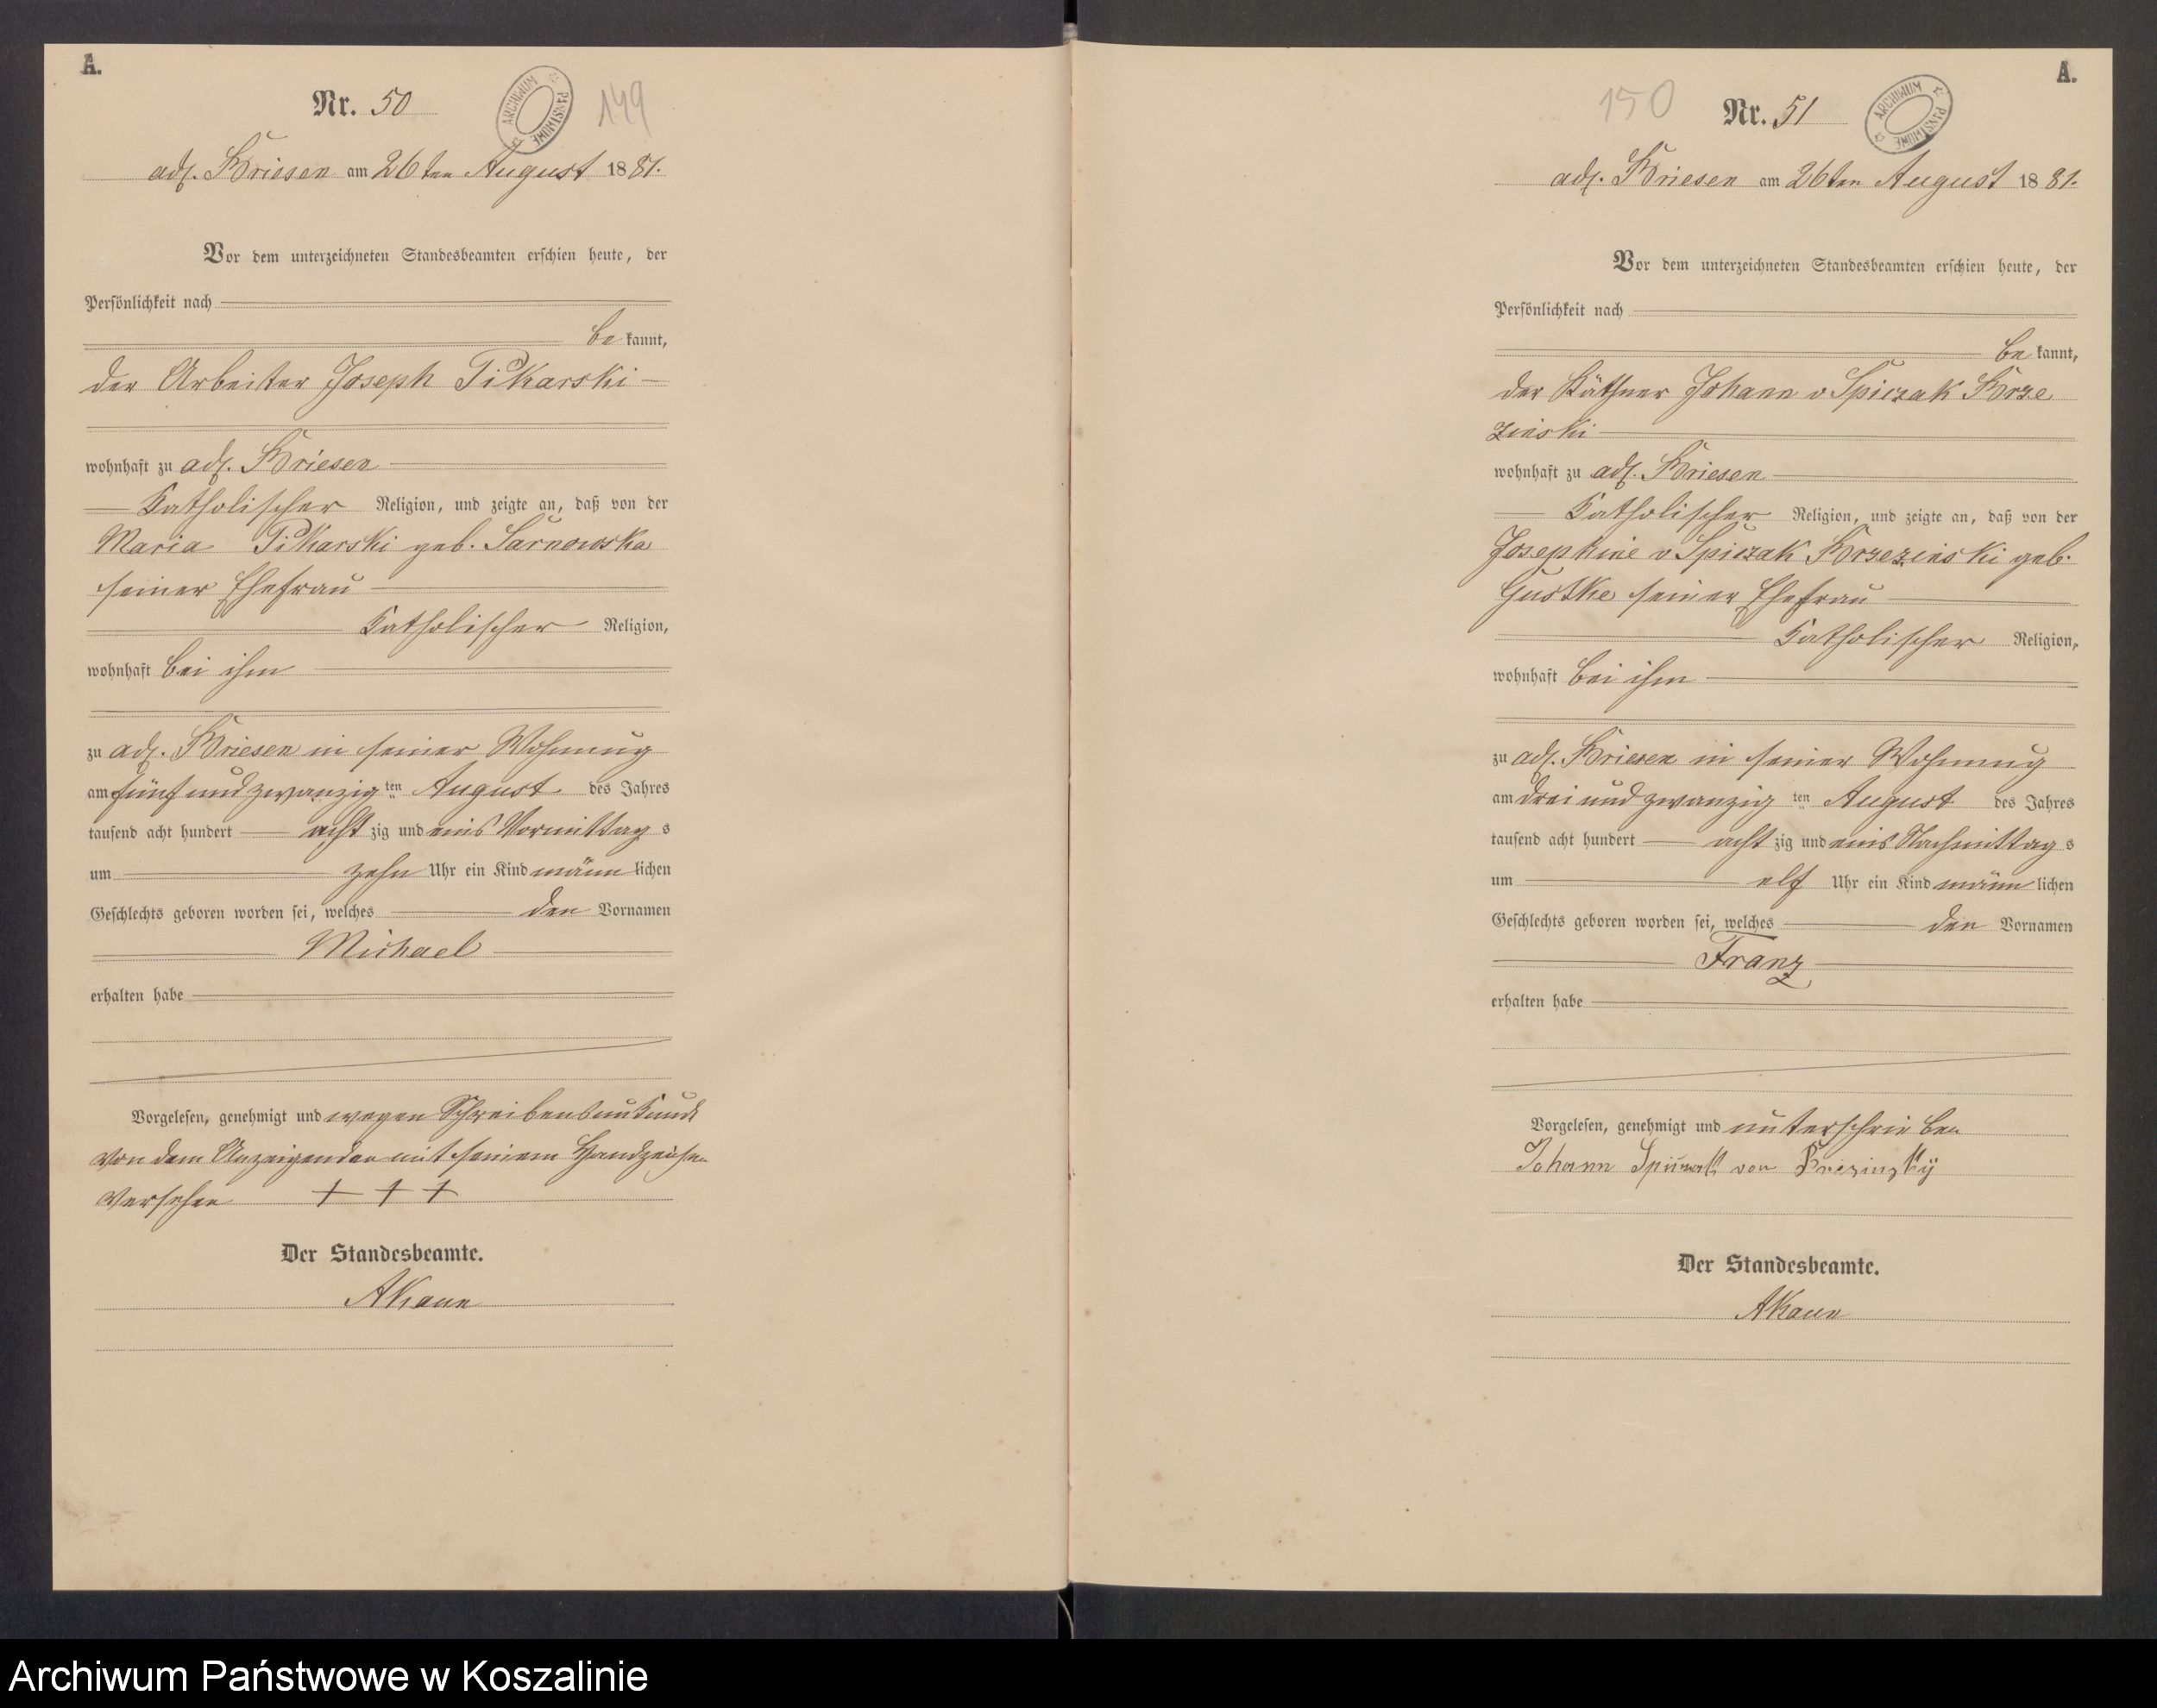 A.
Nr. 50
ARCHIWUM PAŃSTWOWE
149
adl. Briesen am 26ten August 1881.
Vor dem unterzeichneten Standesbeamten erschien heute, der
Persönlichkeit nach
be kannt,
der Arbeiter Joseph Pikarski
wohnhaft zu adl. Briesen
Katholischer Religion, und zeigte an, daß von der
Maria Pikarski geb. Sarnowska
seiner Ehefrau
Katholischer Religion,
wohnhaft bei ihm
zu adl. Briesen in seiner Wohnung
am fünf und zwanzig ten August des Jahres
tausend acht hundert acht zig und eins Vormittag s
um zehn Uhr ein Kind männ lichen
Geschlechts geboren worden sei, welches den Vornamen
Michael
erhalten habe
Vorgelesen, genehmigt und wegen Schreibensunkunde
von dem Anzeigenden mit seinem Handzeichen
versehen + + +
Der Standesbeamte.
A.
150
Nr. 51
ARCHIWUM PAŃSTWOWE
adl. Briesen am 26ten August 1881.
Vor dem unterzeichneten Standesbeamten erschien heute, der
Persönlichkeit nach
be kannt,
der Käthner Johann v Spiczak Brze
zinski
wohnhaft zu adl. Briesen
Katholischer Religion, und zeigte an, daß von der
Josephine v Spiczak Brzezinski geb.
Gustke seiner Ehefrau
Katholischer Religion,
wohnhaft bei ihm
zu adl. Briesen in seiner Wohnung
am drei und zwanzig ten August des Jahres
tausend acht hundert acht zig und eins Nachmittag s
um elf Uhr ein Kind männ lichen
Geschlechts geboren worden sei, welches den Vornamen
Franz
erhalten habe
Vorgelesen, genehmigt und unterschrieben
Johann von
Der Standesbeamte.
Archiwum Państwowe w Koszalinie